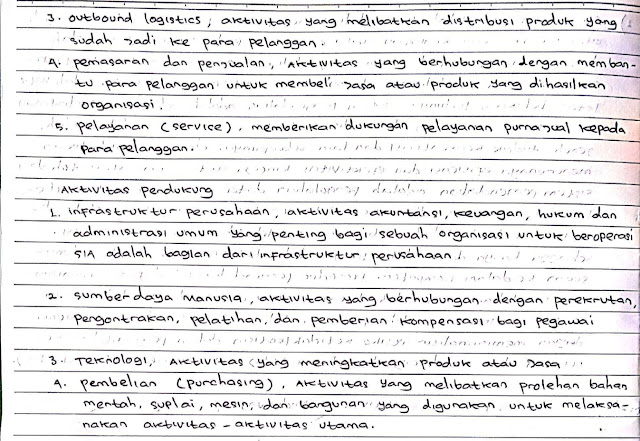 3. outbound logistics, aktivitas yang melibatkan distribusi produk yang
sudah jadi ke para pelanggan.
4. pemasaran dan penjualan, aktivitas yang berhubungan dengan memban-
tu para pelanggan untuk membeli jasa atau produk yang dihasilkan
organisasi.
5. pelayanan (service), memberikan dukungan pelayanan purna jual kepada
para pelanggan.
Aktivitas pendukung
1. infrastruktur perusahaan, aktivitas akuntansi, keuangan, hukum dan
administrasi umum yang penting bagi sebuah organisasi untuk beroperasi
SIA adalah bagian dari infrastruktur perusahaan
2. sumber daya manusia, aktivitas yang berhubungan dengan perekrutan,
pengontrakan, pelatihan, dan pemberian kompensasi bagi pegawai
3. Teknologi, Aktivitas yang meningkatkan produk atau jasa
4. pembelian (purchasing), Aktivitas yang melibatkan prolehan bahan
mentah, suplai, mesin, dan bangunan yang digunakan untuk melaksa-
nakan aktivitas-aktivitas utama.